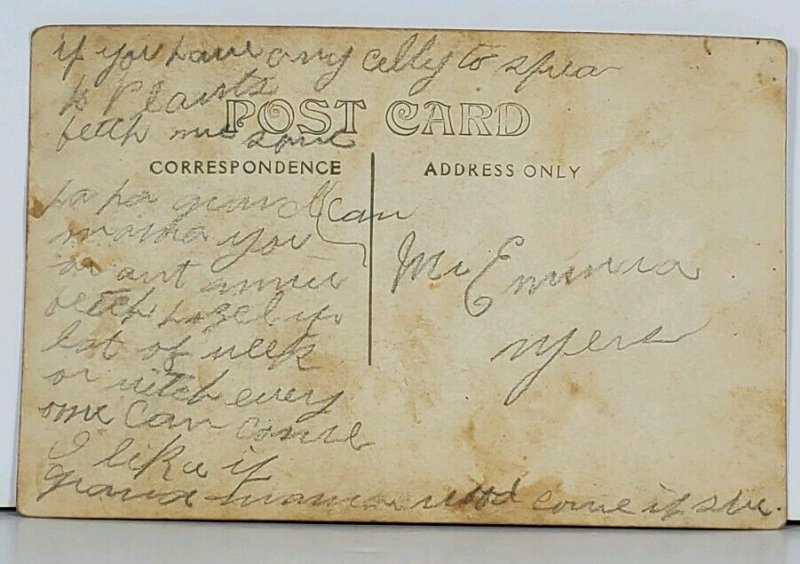 if you have any celly to spea
to Plants
fetch me some
POST CARD
CORRESPONDENCE
ADDRESS ONLY
papa grand can
mama you
or ant annie
fetch hazel up
last of week
or witch every
one can come
I like if
grand mama wood come if she.
Emma
Myers